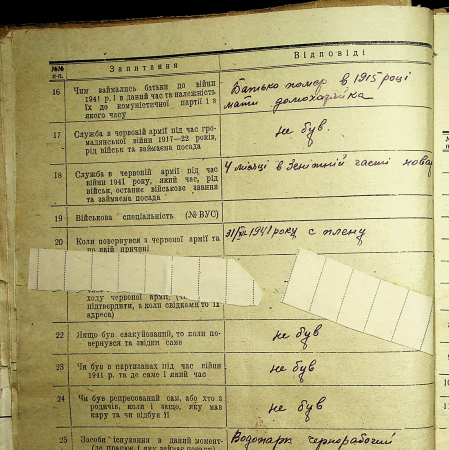 №№ п-п.
Запитання
Відповіді
16
Чим займались батьки до війни
1941 р. і в даний час та належність
їх до комуністичної партії і з
якого часу
Батько помер в 1915 році
мати домохазяйка
17
Служба в червоній армії під час гро-
мадянської війни 1917—22 років,
рід військ та займаєма посада
не був.
18
Служба в червоній армії під час
війни 1941 року, який час, рід
військ, останнє військове звання
та займаєма посада
4 місяці в Зенітній часті
19
Військова спеціяльність (№ ВУС)
20
Коли повернувся з червоної армії та
по якій причині
1941 року с плену
ходу червоної армії,
підтвердити, а коли свідками то їх
адреса)
22
Якщо був евакуйований, то коли по-
вернувся та звідки саме
не був
23
Чи був в партизанах під час війни
1941 р. та де саме і який час
не був
24
Чи був репресований сам, або хто з
родичів, коли і защо, яку мав
кару та чи відбув її
не був
25
Засоби існування в даний момент
(де працює і яку займає посаду)
Водопарк чорнорабочий